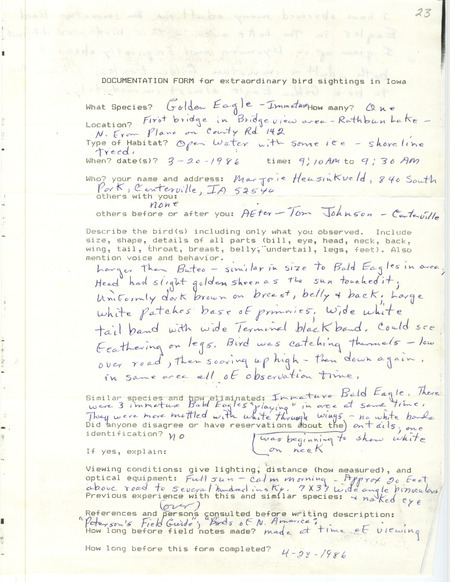 23
DOCUMENTATION FORM for extraordinary bird sightings in Iowa
What Species? Golden Eagle - Immature How many? One
Location? First bridge in Bridgeview area - Rathbun Lake -
N. From Plano on County Rd 142
Type of Habitat? Open Water with some ice - shoreline
treed.
When? date(s)? 3-20-1986 time: 9:10 AM to 9:30 AM
Who? your name and address: Marjorie Heusinkveld, 840 South
Park, Centerville, IA 52544
others with you:
none
others before or after you: After - Tom Johnson - Centerville
Describe the bird(s) including only what you observed. Include
size, shape, details of all parts (bill, eye, head, neck, back,
wing, tail, throat, breast, belly, undertail, legs, feet). Also
mention voice and behavior.
Larger Than Buteo - similar in size to Bald Eagles in area,
Head had slight golden sheen as the sun touched it,
Uniformly dark brown on breast, belly & back. Large
white patches base of primaries. Wide white
tail band with wide Terminal black band. Could see
Feathering on legs. Bird was catching thermals - low
over road, then soaring up high - then down again,
in same area all of observation time.
Similar species and how eliminated: Immature Bald Eagle. There
were 3 immature Bald Eagles "playing" in area at same time.
They were more mottled with white through wings - no white bands
on tails, one
was beginning to show white
on neck
Did anyone disagree or have reservations about the
identification? no
If yes, explain:
Viewing conditions: give lighting, distance (how measured), and
optical equipment: Full sun - calm morning - Approx 20 feet
above road to several hundred in sky. 7 X 35 wide angle binoculars
& naked eye
Previous experience with this and similar species:
(over)
References and persons consulted before writing description:
"Peterson's Field Guide", "Birds of N. America"
How long before field notes made? made at time of viewing
How long before this form completed? 4-23-1986